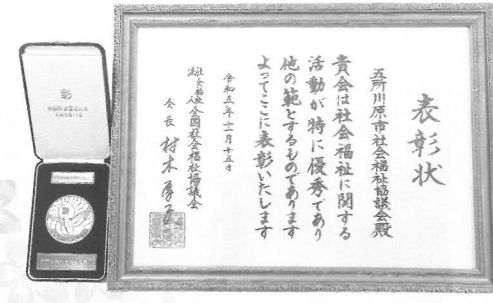 表彰状
五所川原市社会福祉協議会殿
貴会は社会福祉に関する
活動が特に優秀であり
他の範とするものであります
よってここに表彰いたします
令和五年十一月十五日
社会福祉法人全国社会福祉協議会
会長 村木厚子
彰